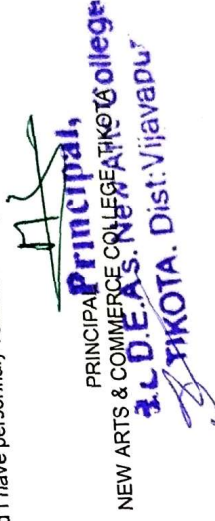 d I have personally
Principal,
PRINCIPAL
NEW ARTS & COMMERCE COLLEGE, TIKOTA
B.L.D.E.A's. New Arts College
TIKOTA. Dist: Vijayapur